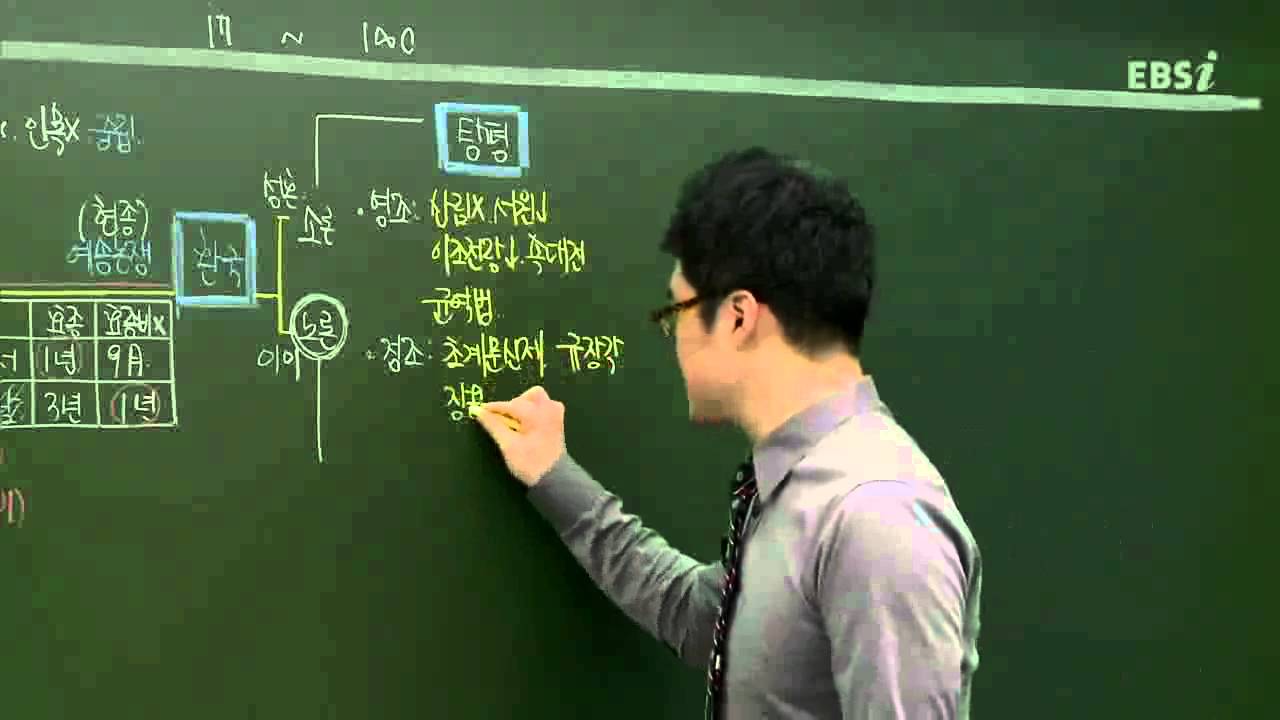 17 ~ 18C
EBSi
인목X 중립
탕평
성혼
(현종)
소론
예송논쟁
환국
· 영조: 산림X 서원↓
이조전랑↓. 속대전
균역법
효종 효종비X
노론
이이
1년 9月
3년 1년
· 정조: 초계문신제, 규장각
장용